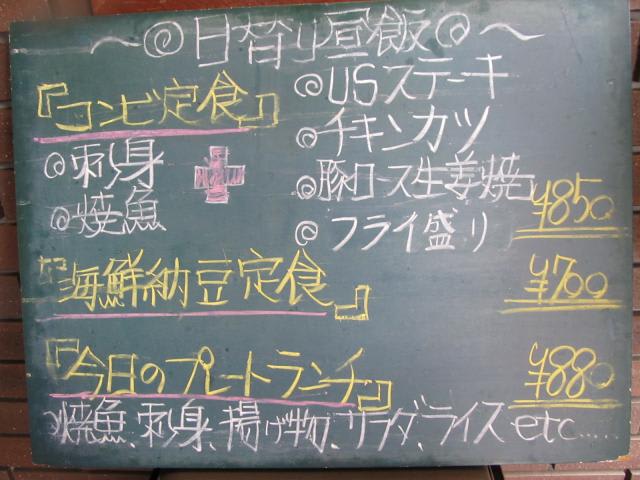 ～◎日替り昼飯◎～
『コンビ定食』
◎刺身
◎焼魚
+
◎USステーキ
◎チキンカツ
◎豚ロース生姜焼
◎フライ盛り
¥850
『海鮮納豆定食』
¥700
『今日のプレートランチ』
¥880
焼魚、刺身、揚げ物、サラダ、ライス etc.....